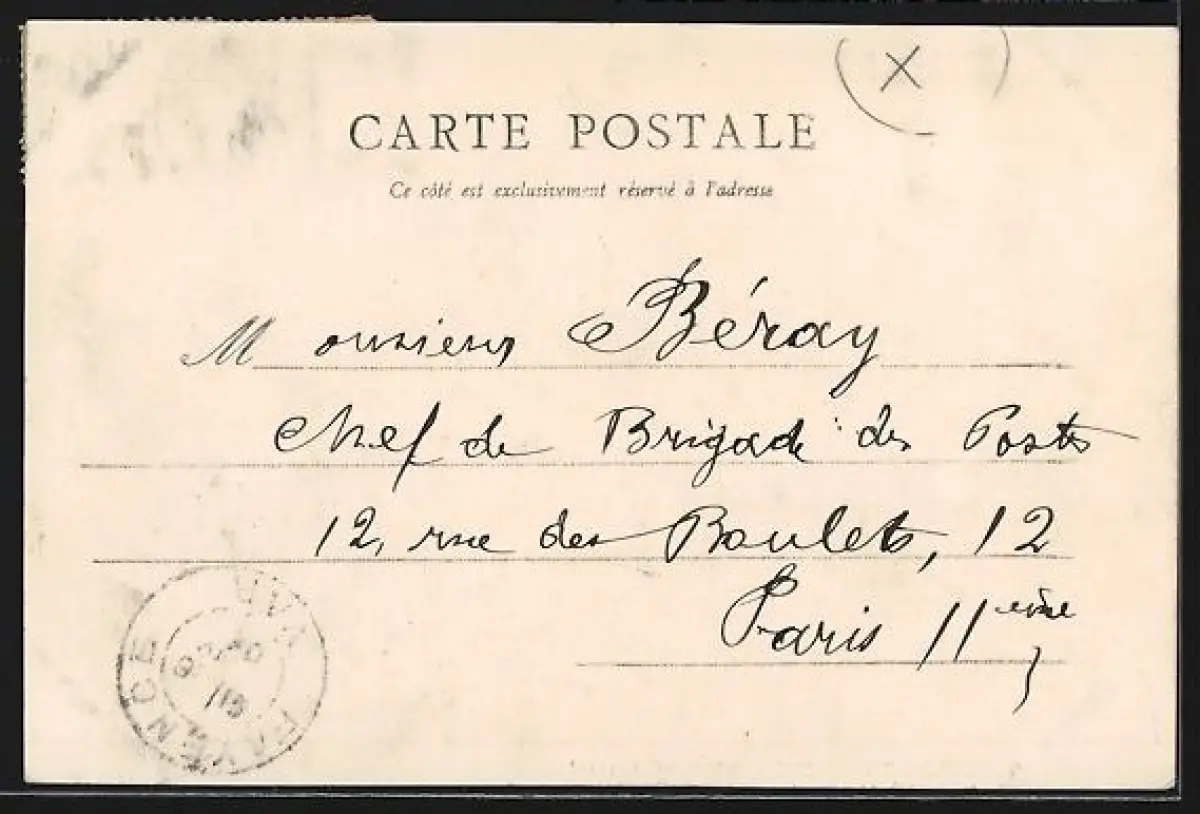 X
CARTE POSTALE
Ce côté est exclusivement réservé à l'adresse
Monsieur Béray
Chef de Brigade des Postes
12, rue des Boulets, 12
Paris 11ème
FAYENCE
VAR